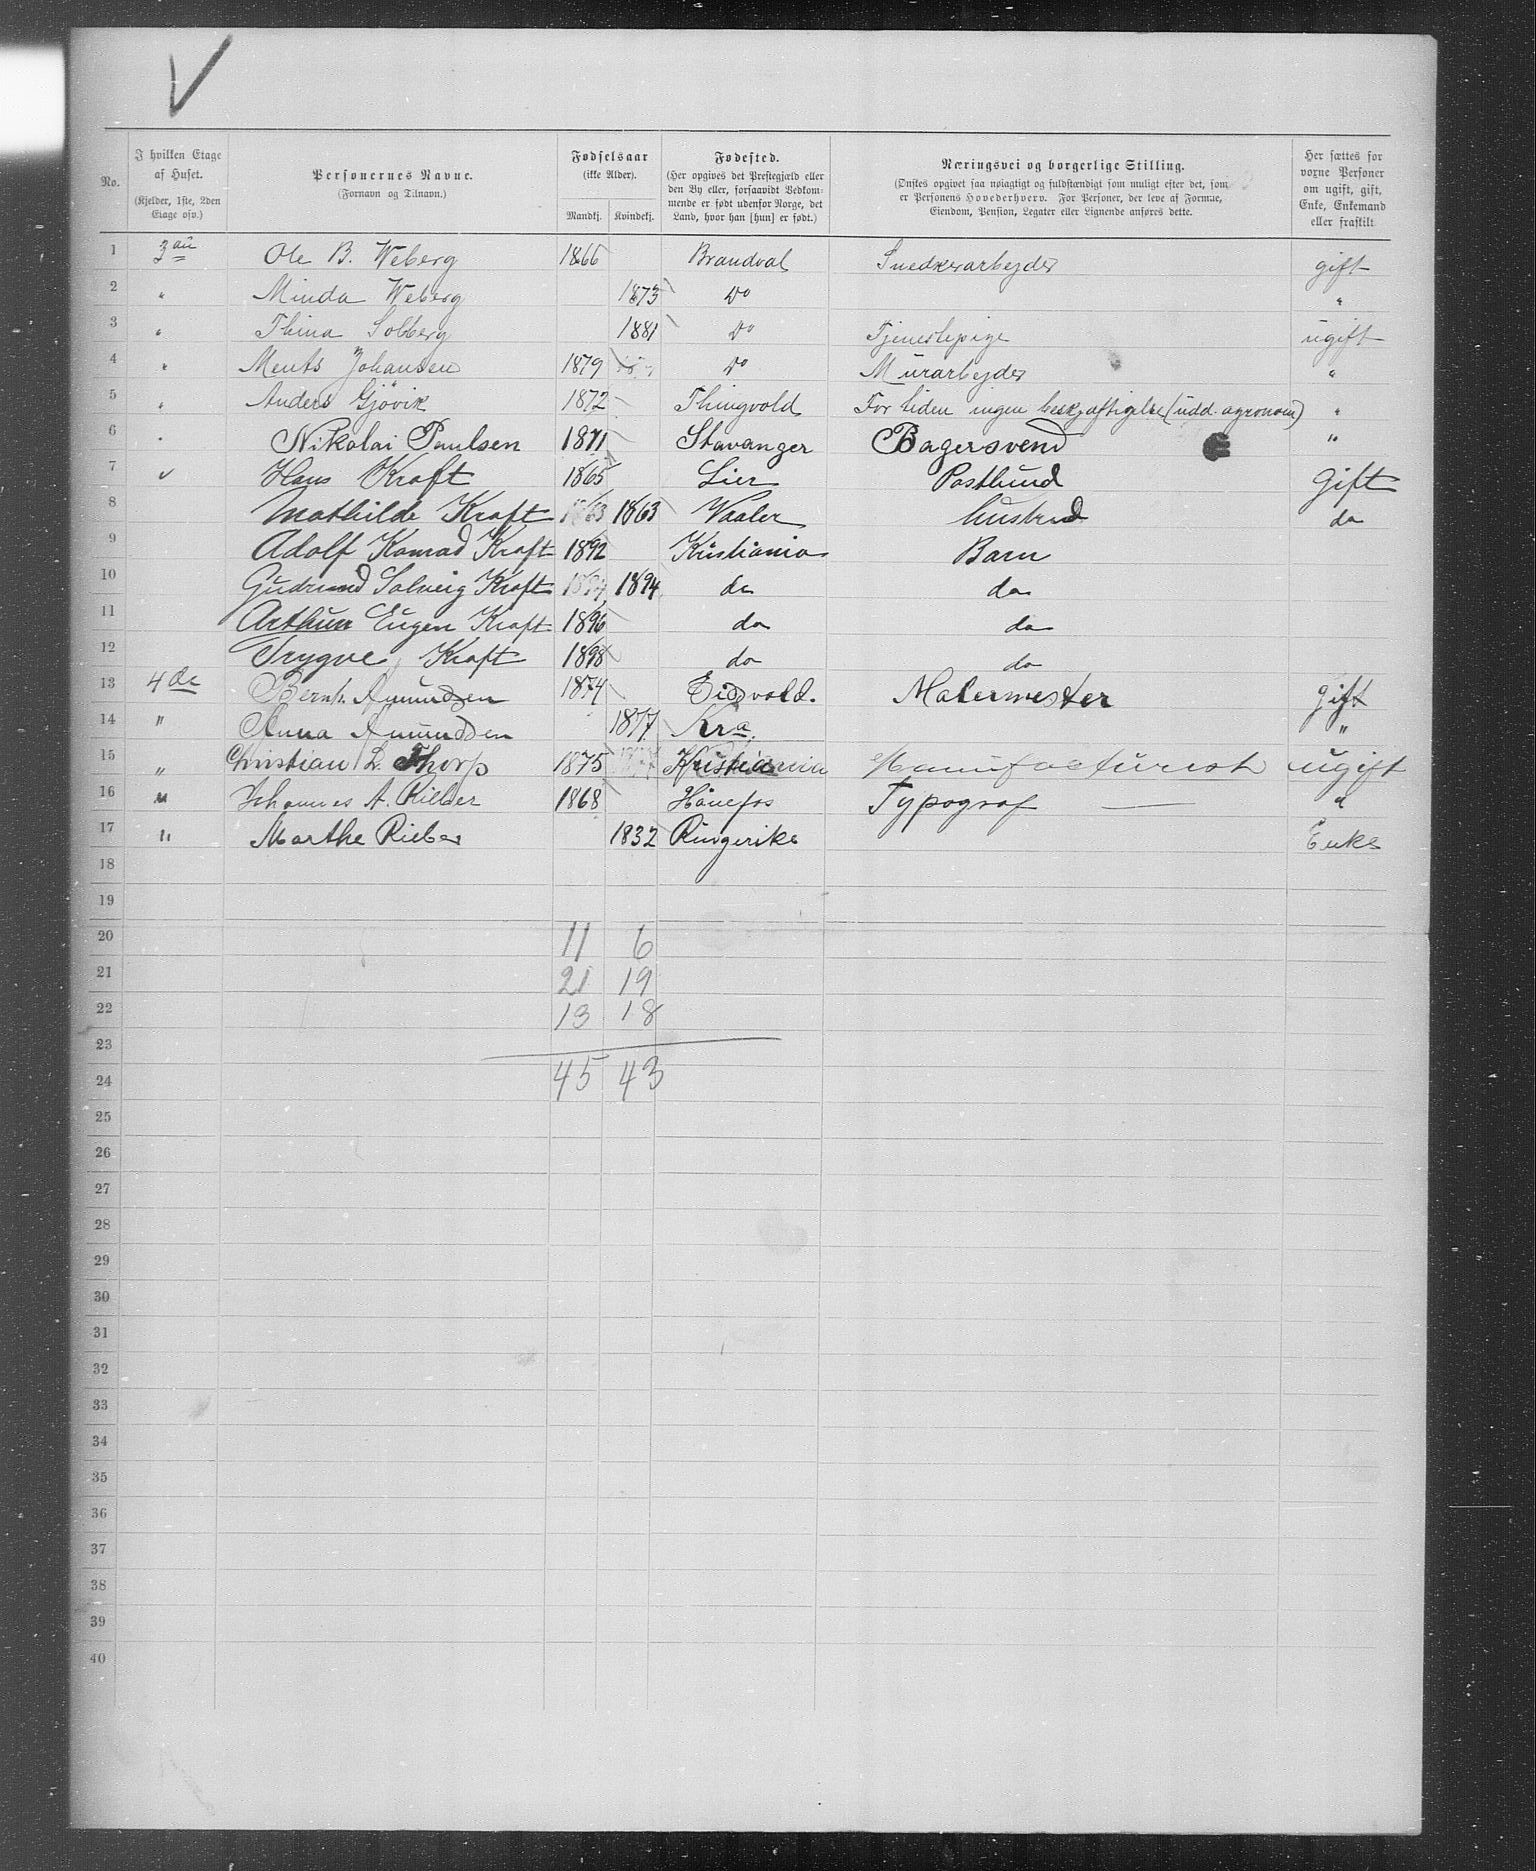 No.
I hvilken Etage af Huset. (Kjelder, 1ste, 2den Etage osv.)
Personernes Navne. (Fornavn og Tilnavn.)
Fødselsaar (ikke Alder). Mandkj. Kvindekj.
Fødested. (Her opgives det Prestegjæld eller den By eller, forsaavidt Vedkommende er født udenfor Norge, det Land, hvor han [hun] er født.)
Næringsvei og borgerlige Stilling. (Ønskes opgivet saa nøiagtigt og fuldstændigt som muligt efter det, som er Personens Hovederhverv. For Personer, der leve af Formue, Eiendom, Pension, Legater eller Lignende anføres dette.
Her sættes for voxne Personer om ugift, gift, Enke, Enkemand eller fraskilt
1 3die Ole B. Weberg 1866 Brandval Snedkerarbejder gift
2 " Minda Weberg 1873 Do "
3 " Thina Solberg 1881 Do Tjenestepige ugift
4 " Ments Johansen 1879 Do Murarbejder "
5 " Anders Gjövik 1872 Thingvold For tiden ingen beskjæftigelse (udd. agronom) "
6 " Nikolai Paulsen 1871 Stavanger Bagersvend "
7 " Hans Kraft 1865 Lier Postbud Gift
8 Mathilde Kraft 1863 Vaaler Hustrud do
9 Adolf Konrad Kraft 1892 Kristiania Barn
10 Gudrund Solveig Kraft 1894 do do
11 Arthur Eugen Kraft 1896 do do
12 Trygve Kraft 1898 do do
13 4de Bernh. Amundsen 1874 Eidsvold. Malermester gift
14 " Anna Amundsen 1877 Kra. "
15 " Christian L. Thorp 1875 Kristiania Manufacturist ugift
16 " Johannes A. Rieber 1868 Hönefos Typograf "
17 " Marthe Rieber 1832 Ringerike Enke
18
19
20 11 6
21 21 19
22 13 18
23
24 45 43
25
26
27
28
29
30
31
32
33
34
35
36
37
38
39
40